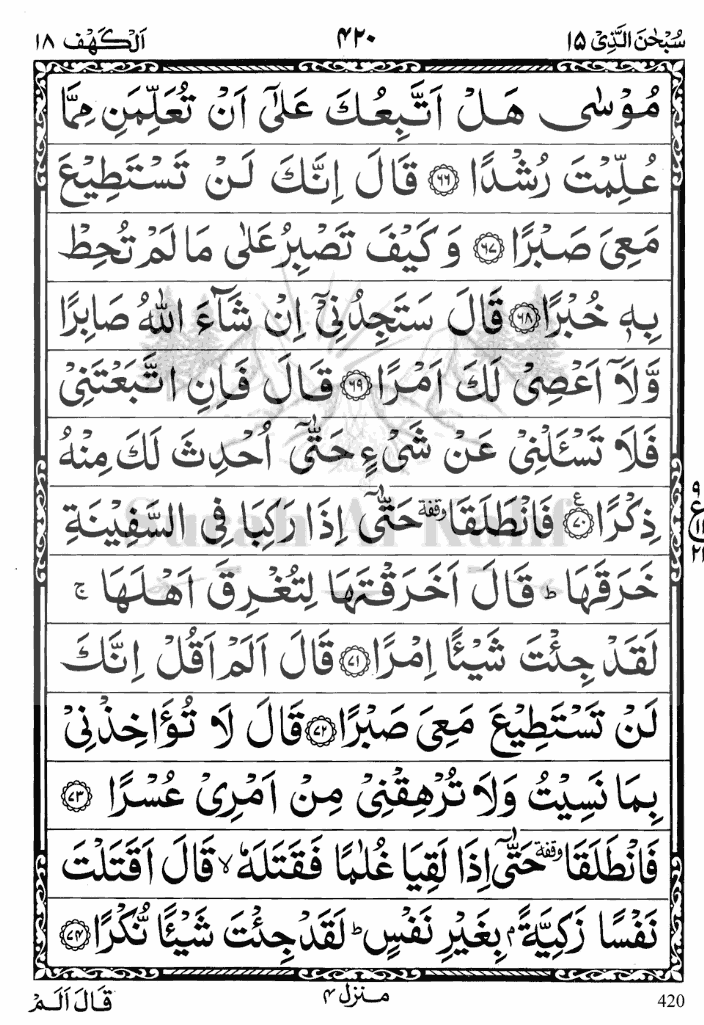 سُبْحٰنَ الَّذِیْۤ ١٥ ٤٢٠ اَلْكَهْف ١٨
مُوْسٰى هَلْ اَتَّبِعُكَ عَلٰۤى اَنْ تُعَلِّمَنِ مِمَّا
عُلِّمْتَ رُشْدًا ۝٦٦ قَالَ اِنَّكَ لَنْ تَسْتَطِیْعَ
مَعِیَ صَبْرًا ۝٦٧ وَ كَیْفَ تَصْبِرُ عَلٰى مَا لَمْ تُحِطْ
بِهٖ خُبْرًا ۝٦٨ قَالَ سَتَجِدُنِیْۤ اِنْ شَآءَ اللّٰهُ صَابِرًا
وَّلَاۤ اَعْصِیْ لَكَ اَمْرًا ۝٦٩ قَالَ فَاِنِ اتَّبَعْتَنِیْ
فَلَا تَسْـَٔلْنِیْ عَنْ شَیْءٍ حَتّٰۤى اُحْدِثَ لَكَ مِنْهُ
ذِكْرًا ۝٧٠ ع فَانْطَلَقَا وقفة حَتّٰۤى اِذَا رَكِبَا فِی السَّفِیْنَةِ
٩
ع
١١
٢١
خَرَقَهَا ط قَالَ اَخَرَقْتَهَا لِتُغْرِقَ اَهْلَهَا ج
لَقَدْ جِئْتَ شَیْـًٔا اِمْرًا ۝٧١ قَالَ اَلَمْ اَقُلْ اِنَّكَ
لَنْ تَسْتَطِیْعَ مَعِیَ صَبْرًا ۝٧٢ قَالَ لَا تُؤَاخِذْنِیْ
بِمَا نَسِیْتُ وَلَا تُرْهِقْنِیْ مِنْ اَمْرِیْ عُسْرًا ۝٧٣
فَانْطَلَقَا وقفة حَتّٰۤى اِذَا لَقِیَا غُلٰمًا فَقَتَلَهٗ لا قَالَ اَقَتَلْتَ
نَفْسًا زَكِیَّةًۢ بِغَیْرِ نَفْسٍ ط لَقَدْ جِئْتَ شَیْـًٔا نُّكْرًا ۝٧٤
Surah Al Kahf
قَالَ اَلَمْ منزل ٤ 420